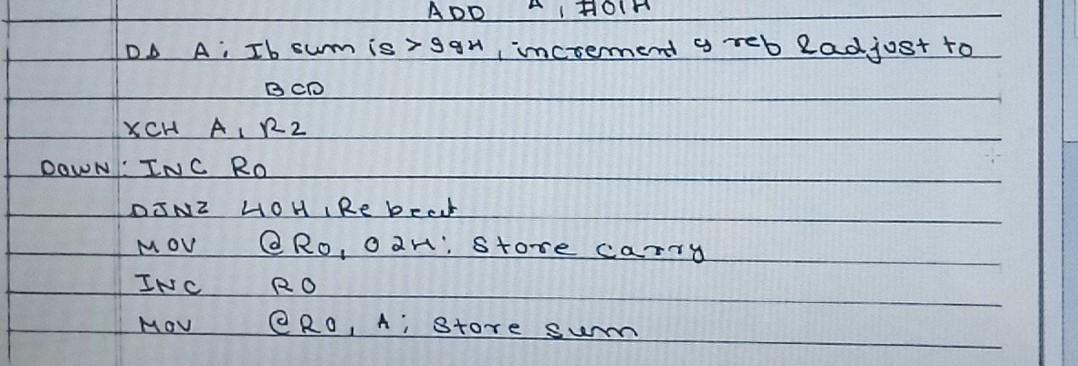 ADD A, #01H
DA A; Ib sum is > 99H, increment g reb & adjust to
BCD
XCH A, R2
DOWN: INC R0
DJNZ 40H, Rebeat
MOV @R0, 02H; Store carry
INC R0
MOV @R0, A; Store sum